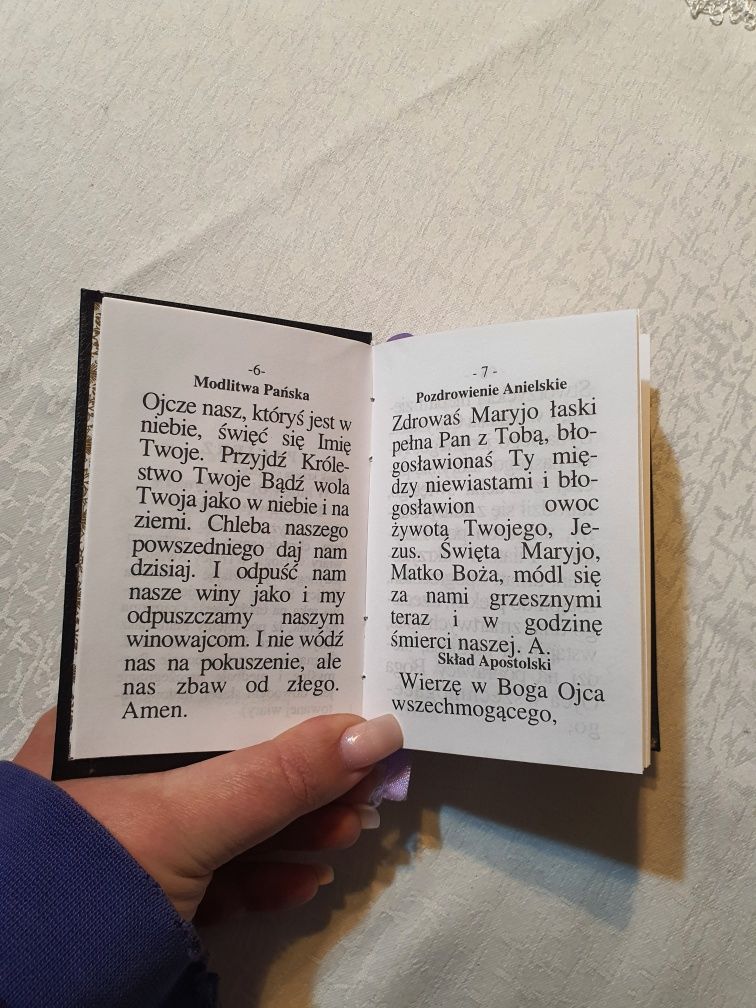 -6-
Modlitwa Pańska
Ojcze nasz, któryś jest w
niebie, święć się Imię
Twoje. Przyjdź Króle-
stwo Twoje Bądź wola
Twoja jako w niebie i na
ziemi. Chleba naszego
powszedniego daj nam
dzisiaj. I odpuść nam
nasze winy jako i my
odpuszczamy naszym
winowajcom. I nie wódź
nas na pokuszenie, ale
nas zbaw od złego.
Amen.
- 7 -
Pozdrowienie Anielskie
Zdrowaś Maryjo łaski
pełna Pan z Tobą, bło-
gosławionaś Ty mię-
dzy niewiastami i bło-
gosławion owoc
żywotą Twojego, Je-
zus. Święta Maryjo,
Matko Boża, módl się
za nami grzesznymi
teraz i w godzinę
śmierci naszej. A.
Skład Apostolski
Wierzę w Boga Ojca
wszechmogącego,